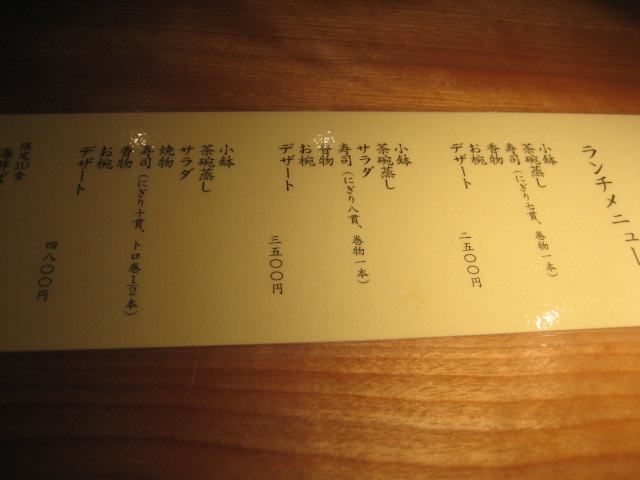 ランチメニュー
小鉢
茶碗蒸し
寿司（にぎり七貫、巻物一本）
香物
お椀
デザート
二五〇〇円
小鉢
茶碗蒸し
サラダ
寿司（にぎり八貫、巻物一本）
香物
お椀
デザート
三五〇〇円
小鉢
茶碗蒸し
サラダ
焼物
寿司（にぎり十貫、トロ巻1/2本）
香物
お椀
デザート
四八〇〇円
限定10食